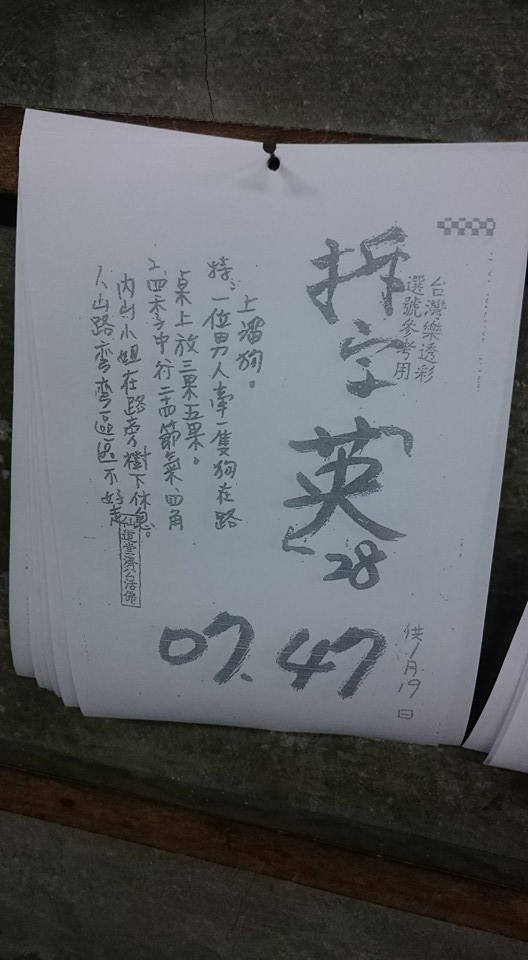 台灣樂透彩
選號參考用
拆字英
28
07.47
供1月19日
特:一位男人牽一隻狗在路
上溜狗。
桌上放三果五果。
2.四季中行二十四節氣、四角
內山小姐在路旁樹下休息。
人山路弯弯區區不好走
仙道堂濟公活佛